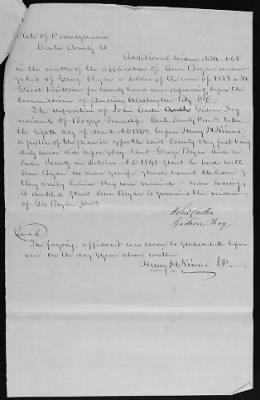 State of Pennsylvania
Centre County SS
Additional evidence
in the matter of the application of Ann Bryan
of George Bryan a soldier of the war of 1812 with
Great Brittain for bounty land now depending before the
Commissioner of Pensions Washington City D.C.
The deposition of John Carter Gideon Hoy
residents of Boggs Township Centre County Penna taken
the eighth day of March AD 1862 before Henry McKinnie
a Justice of the peace in & for the said County they first being
duly sworn did depose & say that George Bryan died in
Centre County in October AD 1841 that he lived with
Ann Bryan as man & wife & had several children &
they verily believe they were married never hearing
it doubted & that Ann Bryan is & remains the widow
of Geo Bryan Decd
John Carter
Gideon Hoy
Seal
The foregoing affidavit was sworn to & subscribed before
me on the day & year above written
Henry McKinnie JP